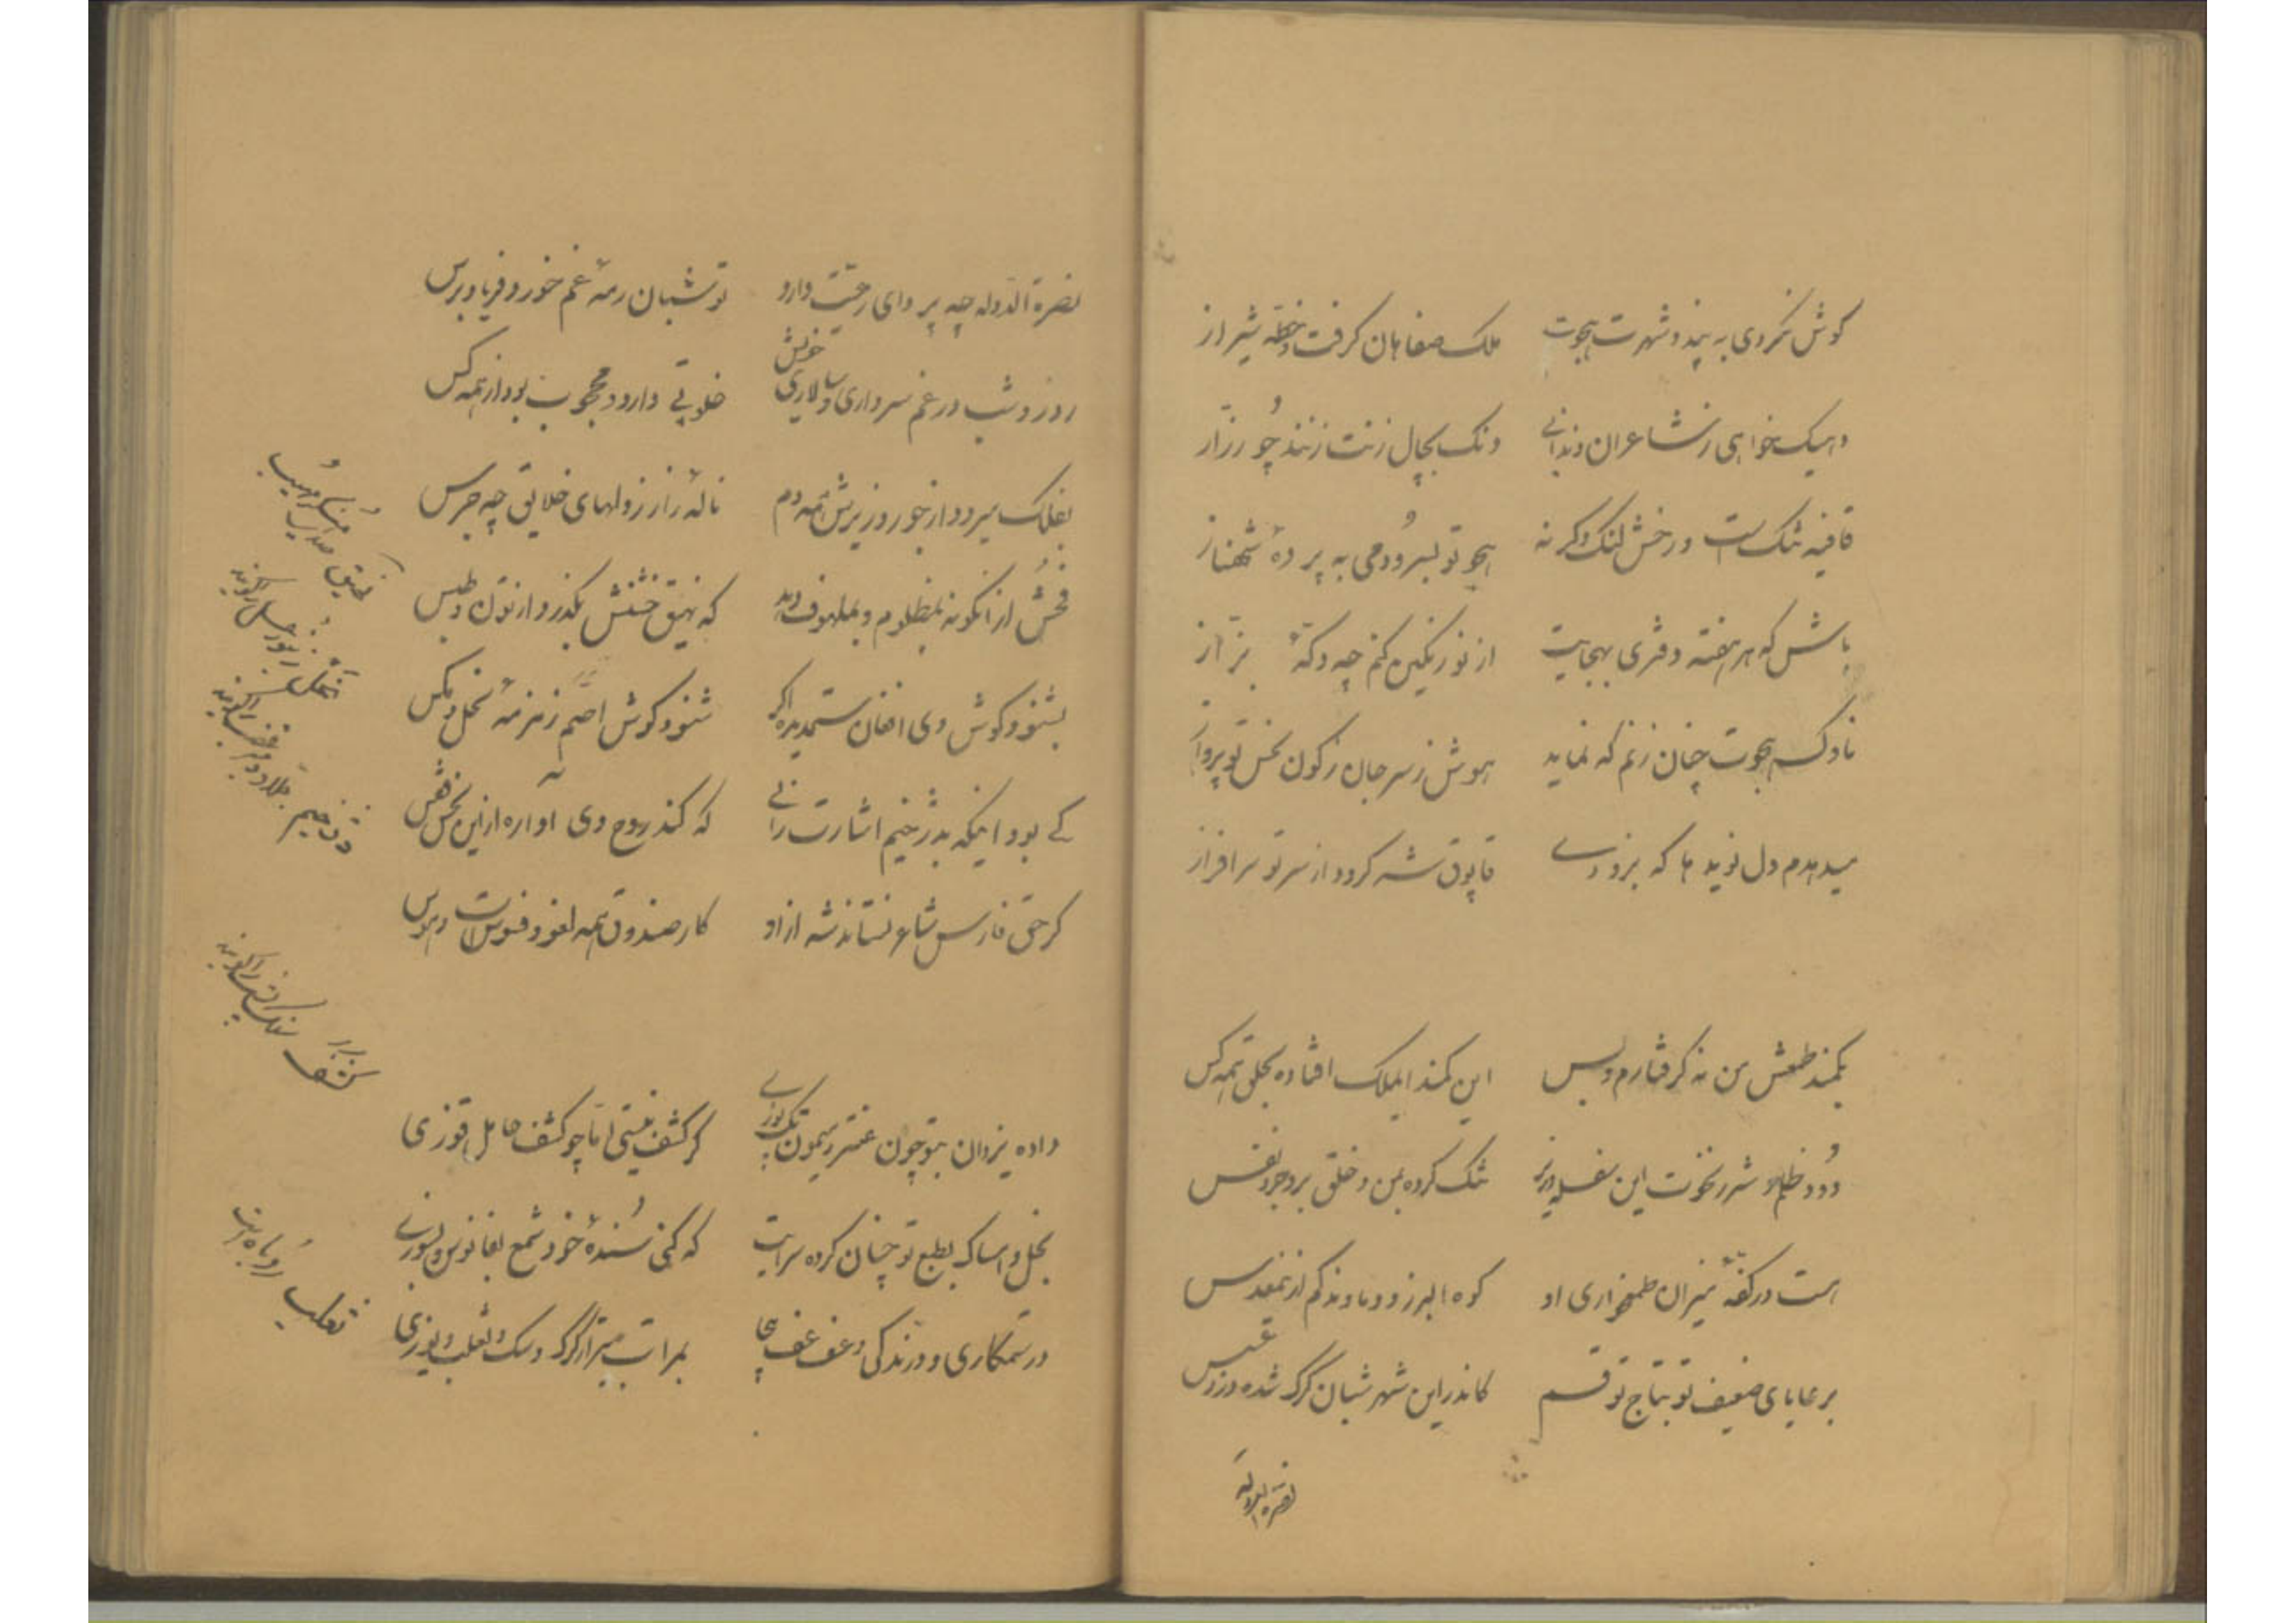 کوش نکردی به پند و شهرت هجوت
ملک صفاهان کرفت و خطه شیراز
خواهی ز شاعران
زنند چو رزاز
قافیه تنک است و رخش لنک وکر نه
هجو تو بسرودمی به پرده شهناز
باش که هر هفته دفتری بهجایت
از نو رنکین کنم چه دکه بزاز
ناوک هجوت چنان زنم که نماید
هوش ز سر جان ز کون نحس تو پرواز
میدهدم دل نوید ها که بزودے
قاپوق شه کردد از سر تو سرافراز
بکمند طمعش من نه کرفتارم و بس
این کمند ایملک افتاده بحلق همه کس
دود ظلم و شرر نخوت این
تنک کرده بمن و خلق بروجرد نفس
هست در کفه میزان طمعخواری او
کوه البرز و دماوند کم از نیمعدس
بر عایای ضعیف تو بتاج تو قسم
کاندر این شهر شبان کرک شده دزد عسس
نصرة الدوله
نصرة الدوله چه پروای رعیت دارد
تو شبان رمه غم خور و فریاد برس
روز و شب در غم سرداری و سالاری خویش
خلوتی دارد و محجوب بود از همه کس
بفلک میرود از جور وزیرش همه دم
ناله زار ز دلهای خلایق چه جرس
فحش از انکونه بمظلوم و بملهوف دهد
که نهیق خشنش بکذرد از
بشنود کوش وی افغان ستمدیده اکر
شنود کوش اصم زمزمه نحل و مکس
کے بود اینکه بدژخیم اشارت رانے
که کند روح وی اواره از این نحس قفس
کر حق فارس شاعر نستاند شه از او
کار صندوق همه لغو و فسوس است و هوس
نهیق صدای
نحل زنبور عسل را کویند
دژخیم جلاد و میرغضب را کویند
داده یزدان بتو چون عنتر و میمون تک و پوزے
کر کشف نیستی اما چو کشف حامل قوزی
بخل و امساک بطبع تو چنان کرده سرایت
که کنی سنده خود شمع بفانوس و بسوزے
در ستمکاری و درندکی و عف عف بیجا
بمراتب بتر از کرک و سک و ثعلب و یوزی
کشف سنک پشت را کویند
ثعلب روباه است